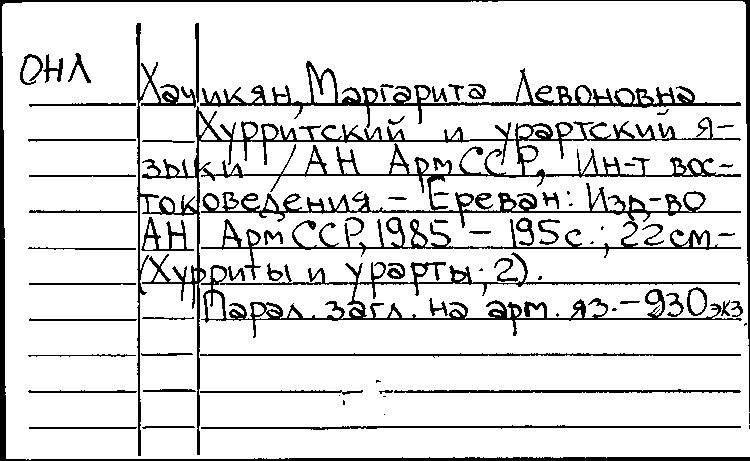 ОНЛ
Хачикян, Маргарита Левоновна
Хурритский и урартский я-
зыки / АН АрмССР, Ин-т вос-
токоведения. – Ереван: Изд-во
АН АрмССР, 1985 – 195с.; 22см.–
(Хурриты и урарты; 2).
Парал. загл. на арм. яз. – 930экз